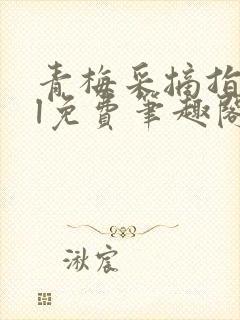 青梅采摘指
1免费笔趣阁
湫宸